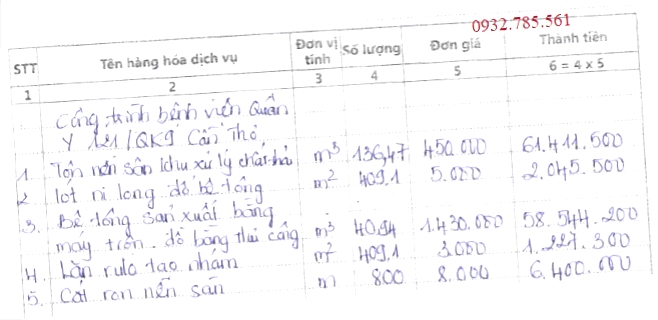 0932.785.561
STT Tên hàng hóa dịch vụ Đơn vị tính Số lượng Đơn giá Thành tiền
1 2 3 4 5 6 = 4 x 5
Công trình bệnh viện Quân
Y 121/QK9 Cần Thơ
1 Tôn nền sân khu xử lý chất thải m³ 136,47 450.000 61.411.500
2 lót ni long đổ bê tông m² 409.1 5.000 2.045.500
3. Bê tông sản xuất bằng
máy trộn. đổ bằng thủ công m³ 40.94 1.430.000 58.544.200
4. Lăn rulo tạo nhám m² 409.1 3.000 1.227.300
5. Cắt ron nền sân m 800 8.000 6.400.000